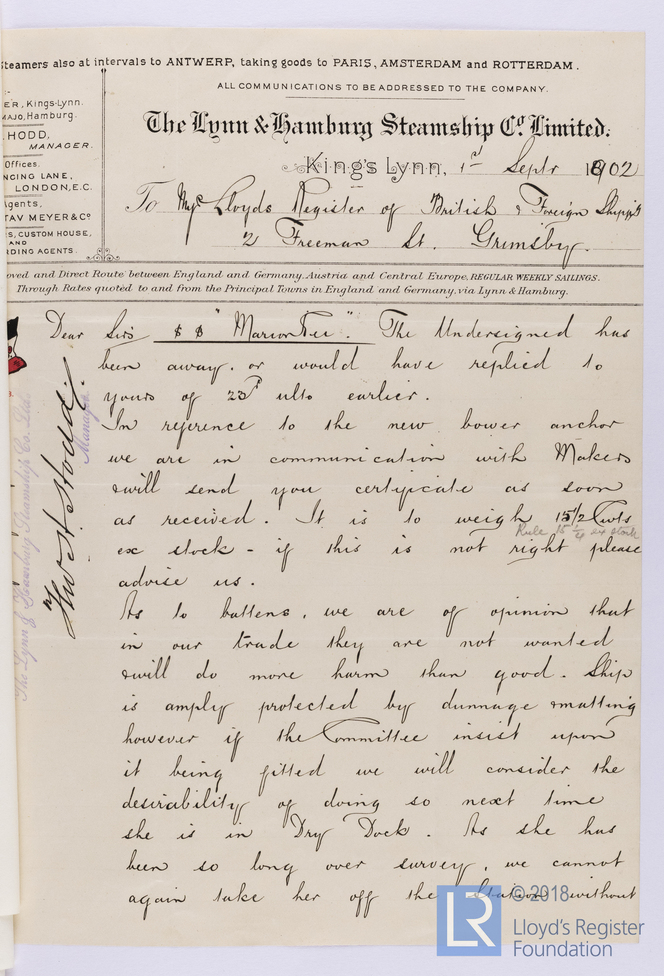 Steamers also at intervals to ANTWERP, taking goods to PARIS, AMSTERDAM and ROTTERDAM.
ALL COMMUNICATIONS TO BE ADDRESSED TO THE COMPANY.
ER, Kings-Lynn.
MAJO, Hamburg.
HODD,
MANAGER.
Offices.
NCING LANE,
LONDON, E.C.
Agents,
TAV MEYER & Co
S, CUSTOM HOUSE,
AND
RDING AGENTS.
The Lynn & Hamburg Steamship Co. Limited.
King's Lynn, 1st Septr 1902
To Lloyds Register of British & Foreign Shippg
2 Freeman St. Grimsby.
oved and Direct Route between England and Germany, Austria and Central Europe, REGULAR WEEKLY SAILINGS.
Through Rates quoted to and from the Principal Towns in England and Germany, via Lynn & Hamburg.
Dear Sirs SS "Marion ". The Undersigned has
been away, or would have replied to
yours of 23d ulto earlier.
In reference to the new bower anchor
we are in communication with Makers
& will send you certificate as soon
as received. It is to weigh 15 1/2 Cwts
Rule 15 1/4 ex stock
ex stock - if this is not right please
advise us.
As to battens, we are of opinion that
in our trade they are not wanted
& will do more harm than good. Ship
is amply protected by dunnage & matting
however if the Committee insist upon
it being fitted we will consider the
desirability of doing so next time
she is in Dry Dock. As she has
been so long over survey, we cannot
again take her off the Station without
The Lynn & Hamburg Steamship Co. Ltd.
Manager.
LR
© 2018
Lloyd's Register
Foundation